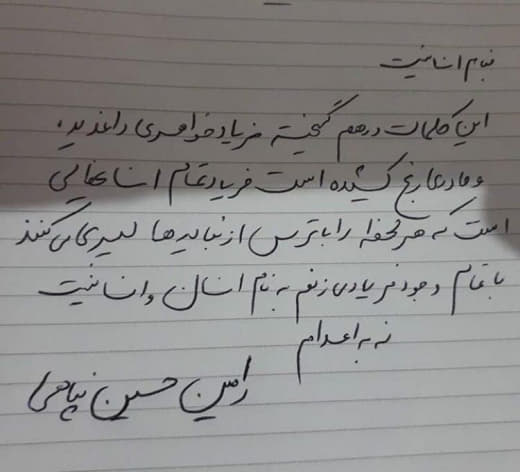 بنام انسانیت
این کلمات درهم گیخته فریاد خواهری داغدیده،
و مادری رنج کشیده است فریاد تمام انسانهایی
است که هر لحظه را با ترس از نبایدها سپری می کنند
با تمام وجود فریاد می زنم به نام انسان و انسانیت
نه به اعدام
رامین حسین پناهی